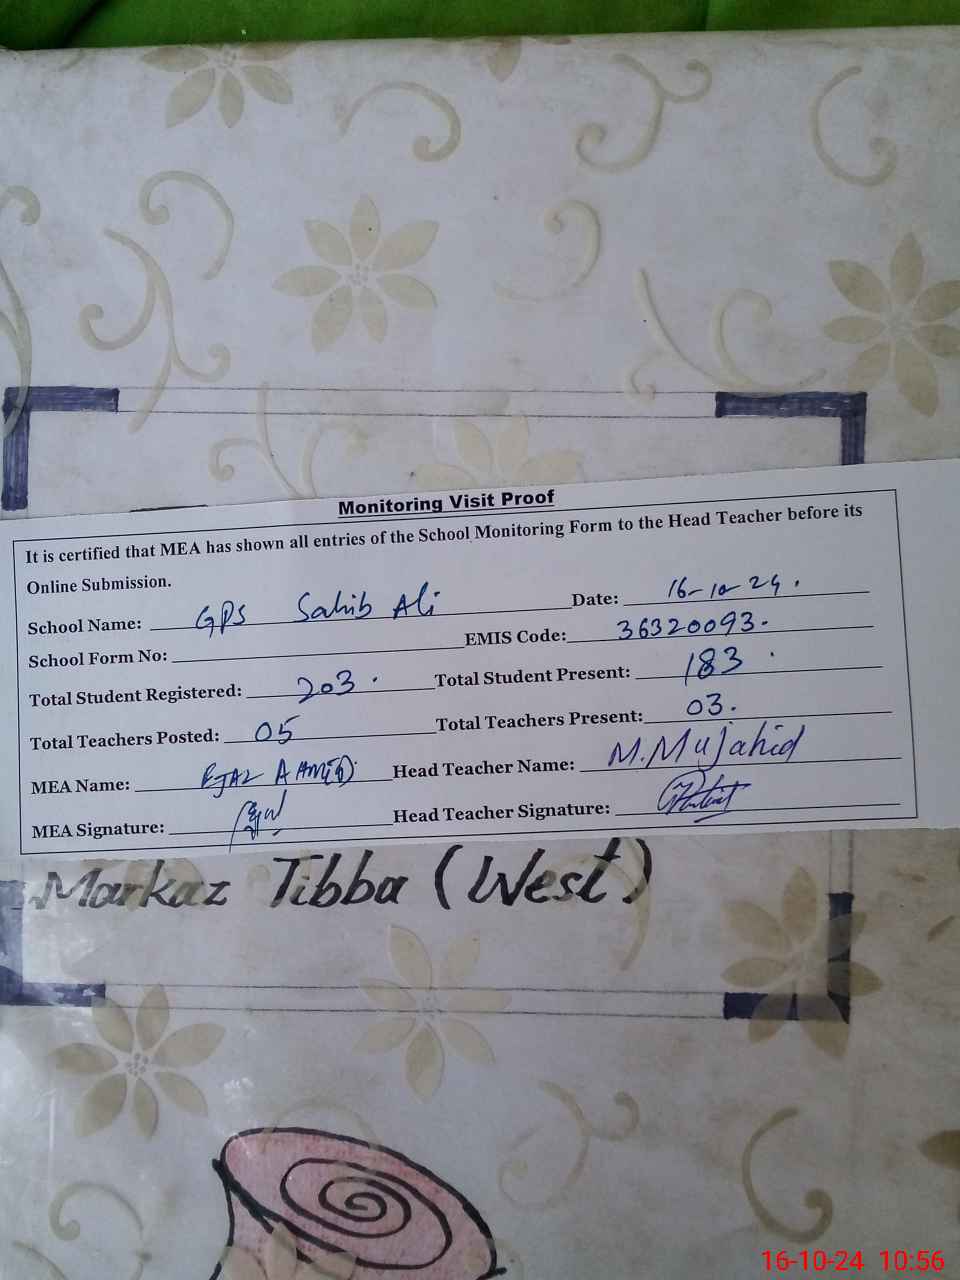 Monitoring Visit Proof
It is certified that MEA has shown all entries of the School Monitoring Form to the Head Teacher before its
Online Submission.
School Name: GPS Sahib Ali Date: 16-10-24.
School Form No: EMIS Code: 36320093.
Total Student Registered: 203. Total Student Present: 183.
Total Teachers Posted: 05 Total Teachers Present: 03.
MEA Name: Head Teacher Name: M.Mujahid
MEA Signature: Head Teacher Signature:
Markaz Tibba (West)
16-10-24 10:56